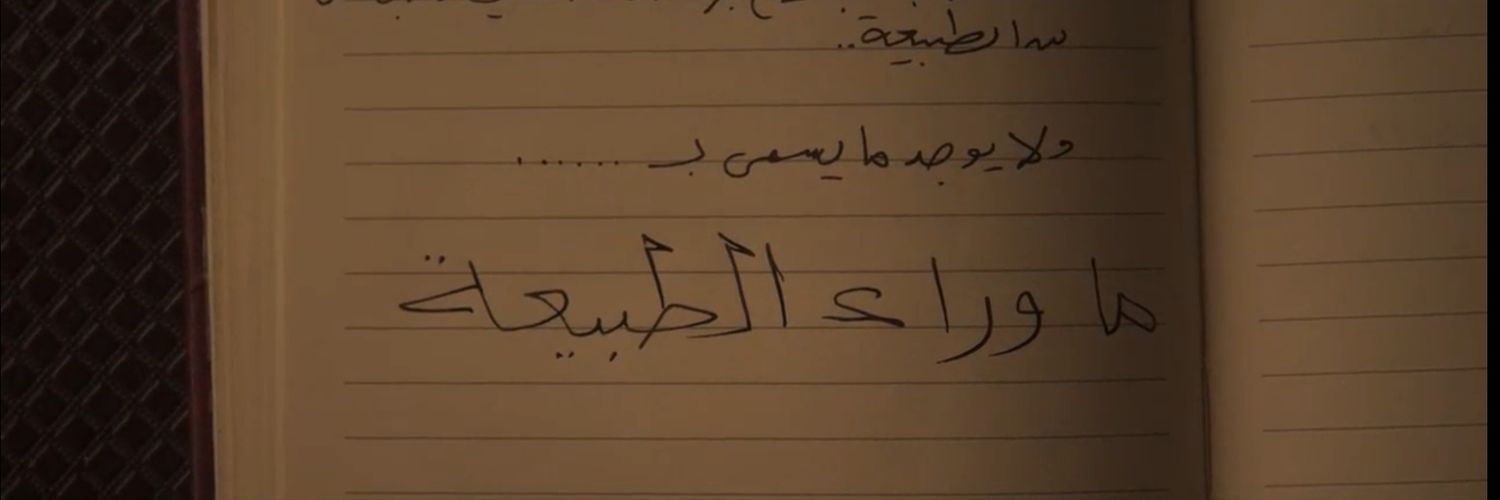 الطبيعة..
ولا يوجد ما يسمى بـ ......
ما وراء الطبيعة